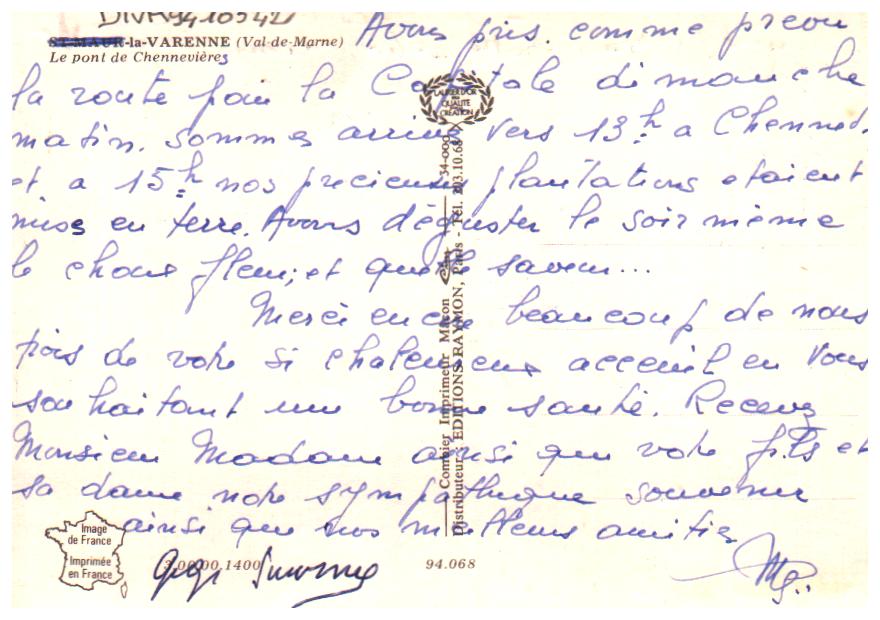 DIVA9410542
ST-MAUR-la-VARENNE (Val-de-Marne)
Le pont de Chennevières
Avons pris. comme prevu
la route pour la Capitale dimanche
matin. sommes arrives vers 13h a Chennev.
et a 15h nos precieuses plantations etaient
mises en terre. Avons déguster le soir même
le choux fleur; et quelle saveur...
Merci encore beaucoup de nous
trois de votre si chaleureux acceuil en vous
souhaitant une bonne santé. Recevez
Monsieur Madame ainsi que votre fils et
sa dame notre sympathique souvenir
ainsi que nos meilleurs amitiés
Gigi Suzanne
LAURIER D'OR
DE
QUALITE
CREATION
Combier Imprimeur Mâcon
Distributeur : EDITIONS RAYMON, Paris - Tél. 203.10.68
Image
de France
Imprimée
en France
3.00.00.1400
94.068